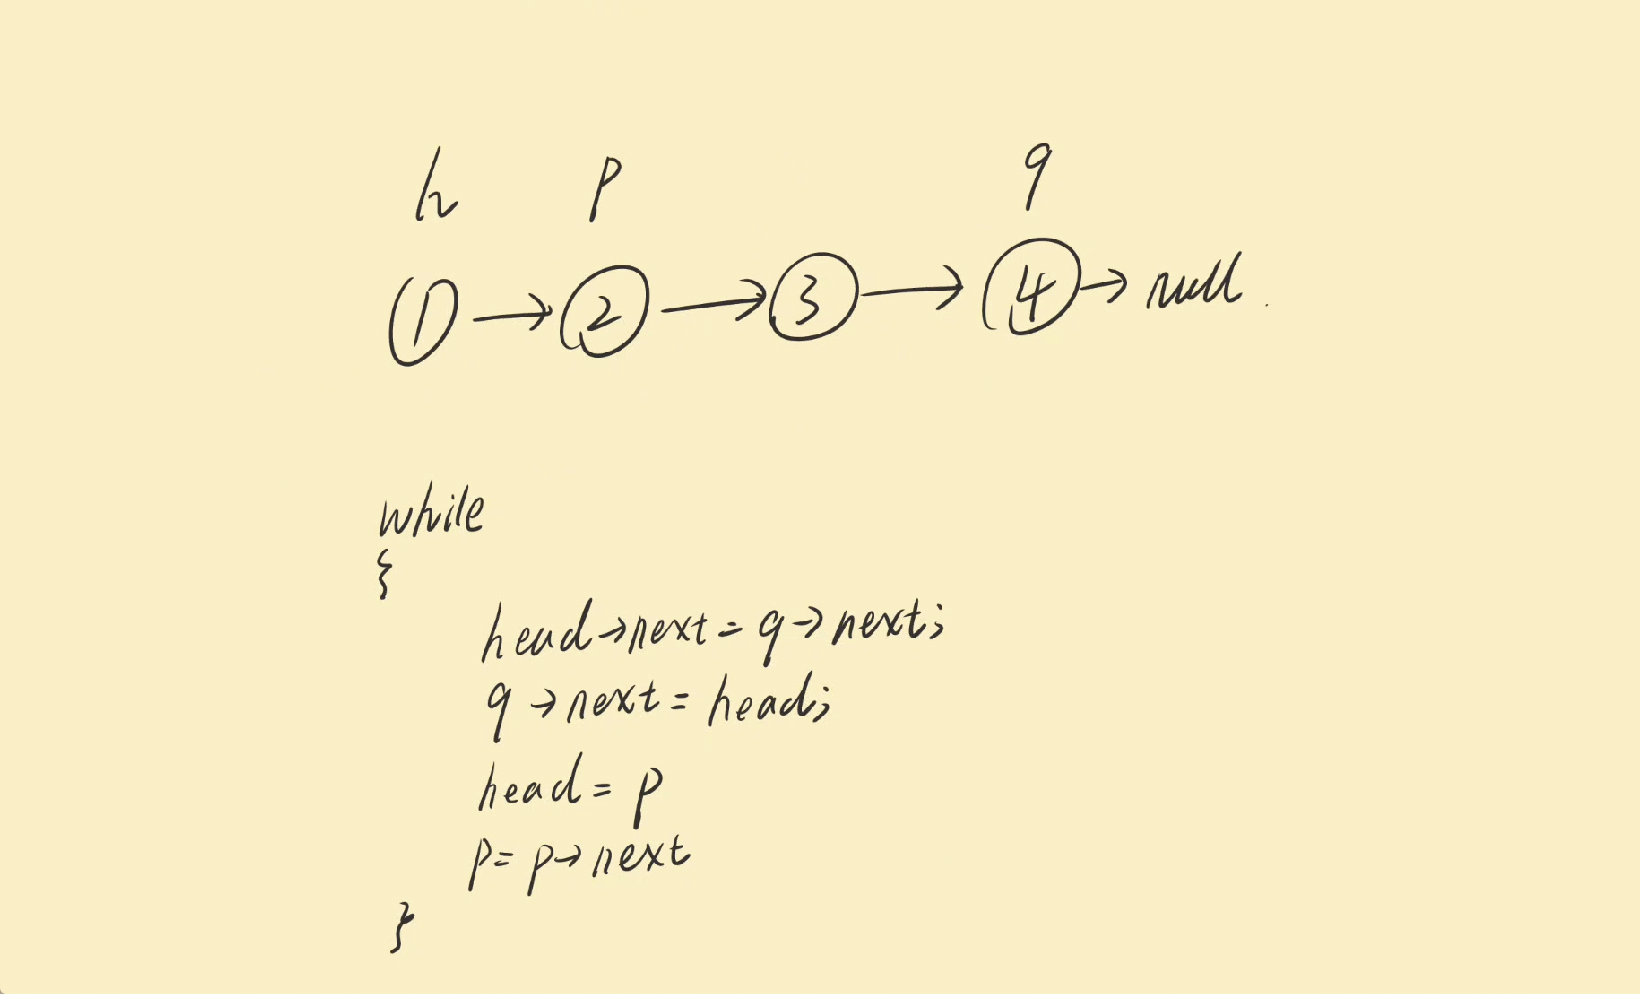 h p q
1 → 2 → 3 → 4 → null
while
{
head→next = q→next;
q→next = head;
head = p
p = p→next
}